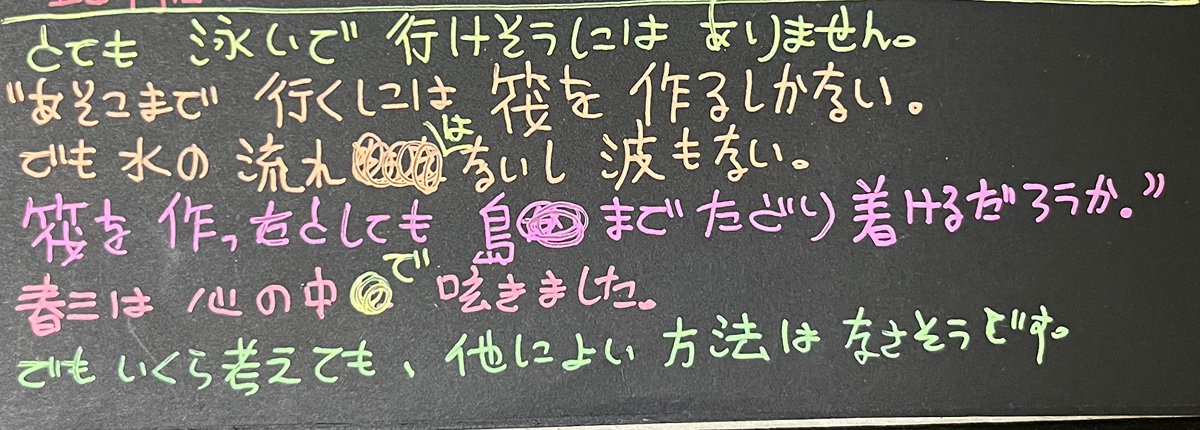 とても 泳いで 行けそうには ありません。
"あそこまで 行くには 筏を 作るしかない。
でも 水の 流れはないし 波もない。
筏を 作ったとしても 島まで たどり着けるだろうか。"
春三は 心の中で 呟きました。
でも いくら考えても、他によい 方法は なさそうです。